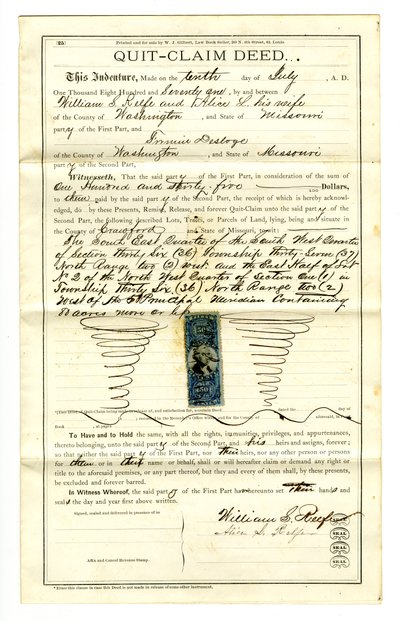 (25) Printed and for sale by W. J. Gilbert, Law Book Seller, 209 N. 4th Street, St. Louis
QUIT-CLAIM DEED.
This Indenture, Made on the tenth day of July, A. D.
One Thousand Eight Hundred and Seventy one, by and between
William S Relfe and Alice L. his wife
of the County of Washington, and State of Missouri
party of the First Part, and
Firmin Desloge
of the County of Washington, and State of Missouri
party of the Second Part,
Witnesseth, That the said party of the First Part, in consideration of the sum of
One Hundred and thirty-five 100 Dollars,
to them paid by the said party of the Second Part, the receipt of which is hereby acknowl-
edged, do by these Presents, Remise, Release, and forever Quit-Claim unto the said party of the
Second Part, the following described Lots, Tracts, or Parcels of Land, lying, being and situate in
the County of Crawford and State of Missouri, to-wit:
The South East Quarter of the South West Quarter
of Section thirty Six (36) Township thirty-Seven (37)
North Range two (2) West. and the East Half of Lot
No 2 of the North West Quarter of Section One (1) in
Township thirty Six (36) North Range two (2)
West of the 5th Principal Meridian Containing
80 acres more or less
To Have and to Hold the same, with all the rights, immunities, privileges, and appurtenances,
thereto belonging, unto the said party of the Second Part, and his heirs and assigns, forever; so
that neither the said party of the First Part, nor their heirs, nor any other person or persons
for them or in their name or behalf, shall or will hereafter claim or demand any right or
title to the aforesaid premises, or any part thereof, but they and every of them shall, by these presents,
be excluded and forever barred.
In Witness Whereof, the said party of the First Part have hereunto set their hands and
seals the day and year first above written.
Signed, sealed and delivered in presence of us
William S. Relfe SEAL
Alice L. Relfe SEAL
SEAL
SEAL
Affix and Cancel Revenue Stamp.
* Erase this clause in case this Deed is not made in release of some other instrument.